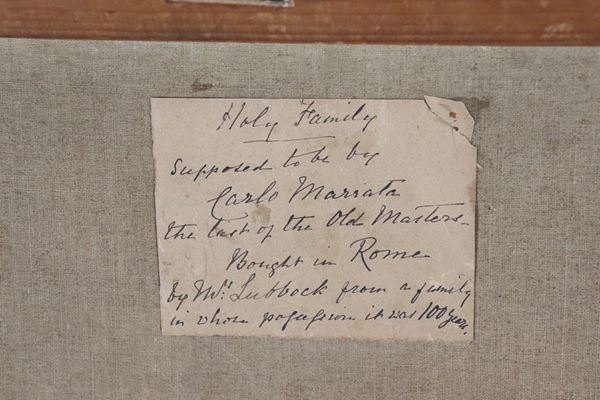 Holy Family
Supposed to be by
Carlo Marrata
the last of the Old Masters.
Bought in Rome
by Mrs Lubbock from a family
in whose possession it was 100 years.